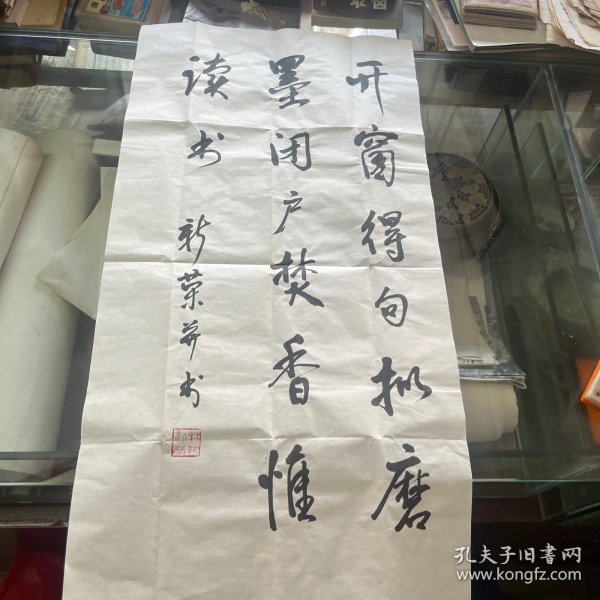 开窗得句拟磨
墨闭户焚香惟
读书 新荣并书
孔夫子旧书网
www.kongfz.com